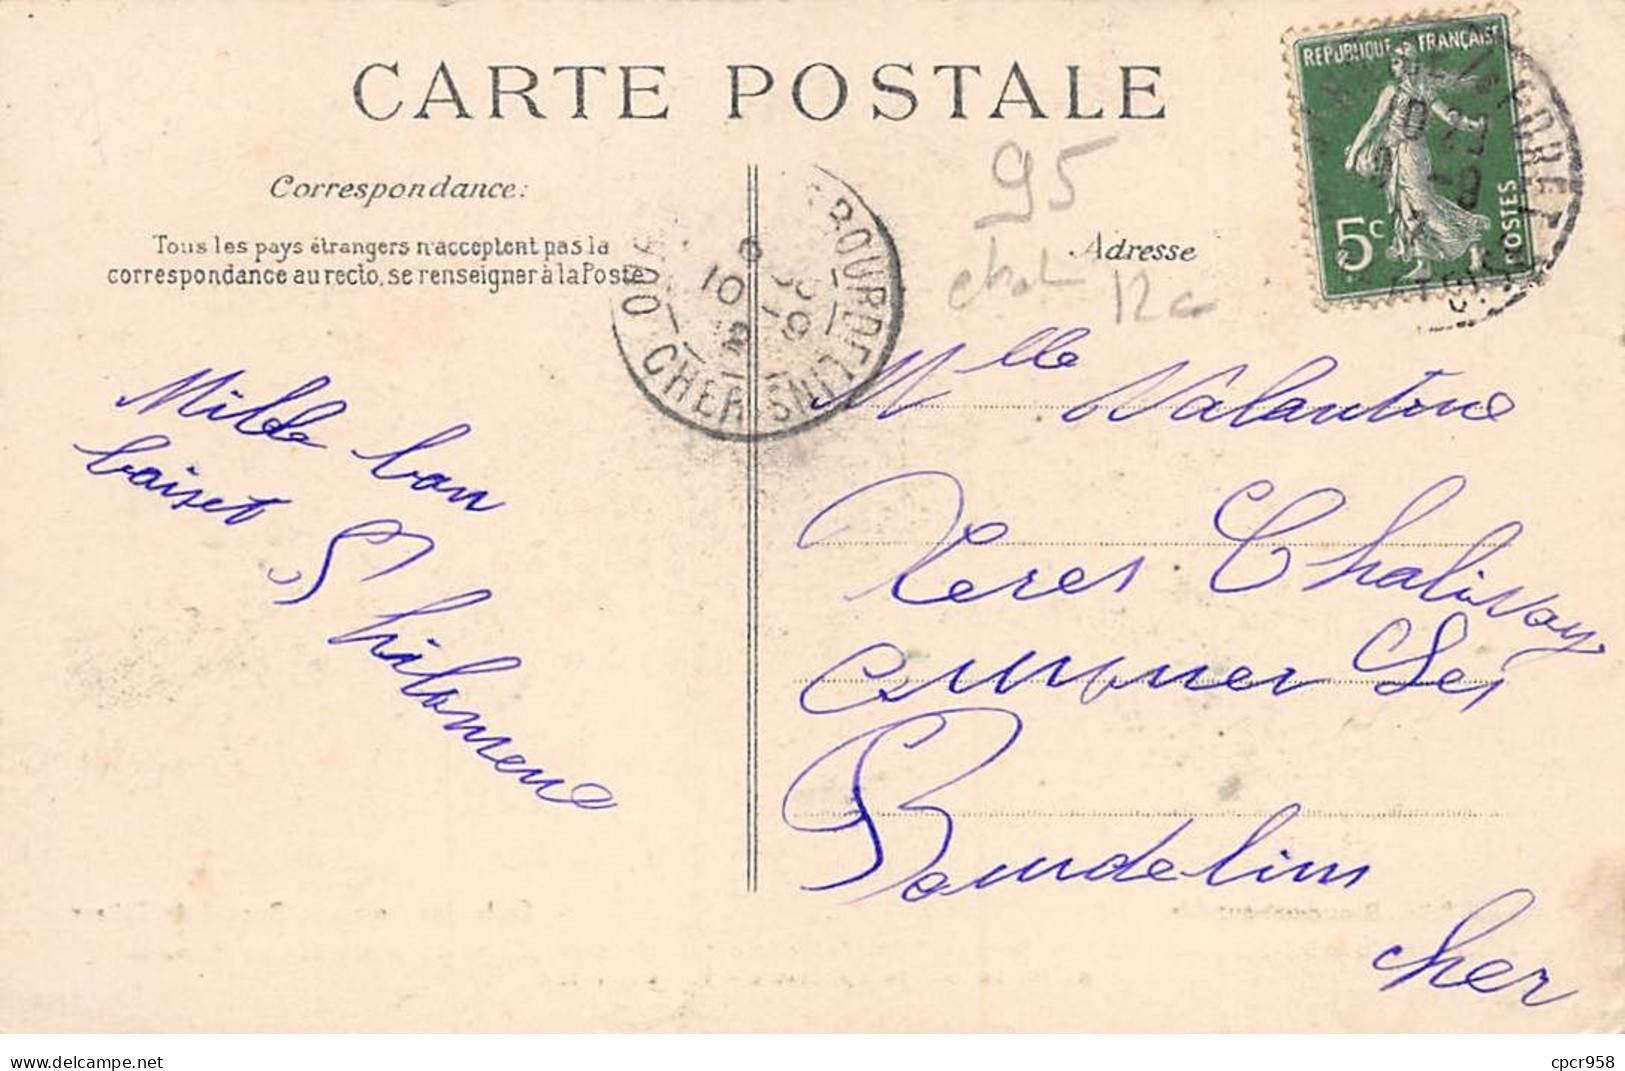 CARTE POSTALE
Correspondance:
Tous les pays étrangers n'acceptent pas la
correspondance au recto, se renseigner à la Poste
Adresse
95
12c
REPUBLIQUE FRANÇAISE
5c
POSTES
BOURDELINS
CHER
Mille bon
baiset
Philomene
Mlle Valantine
Xeres Chalivoy
Les
Bourdelins
cher
cpcr958